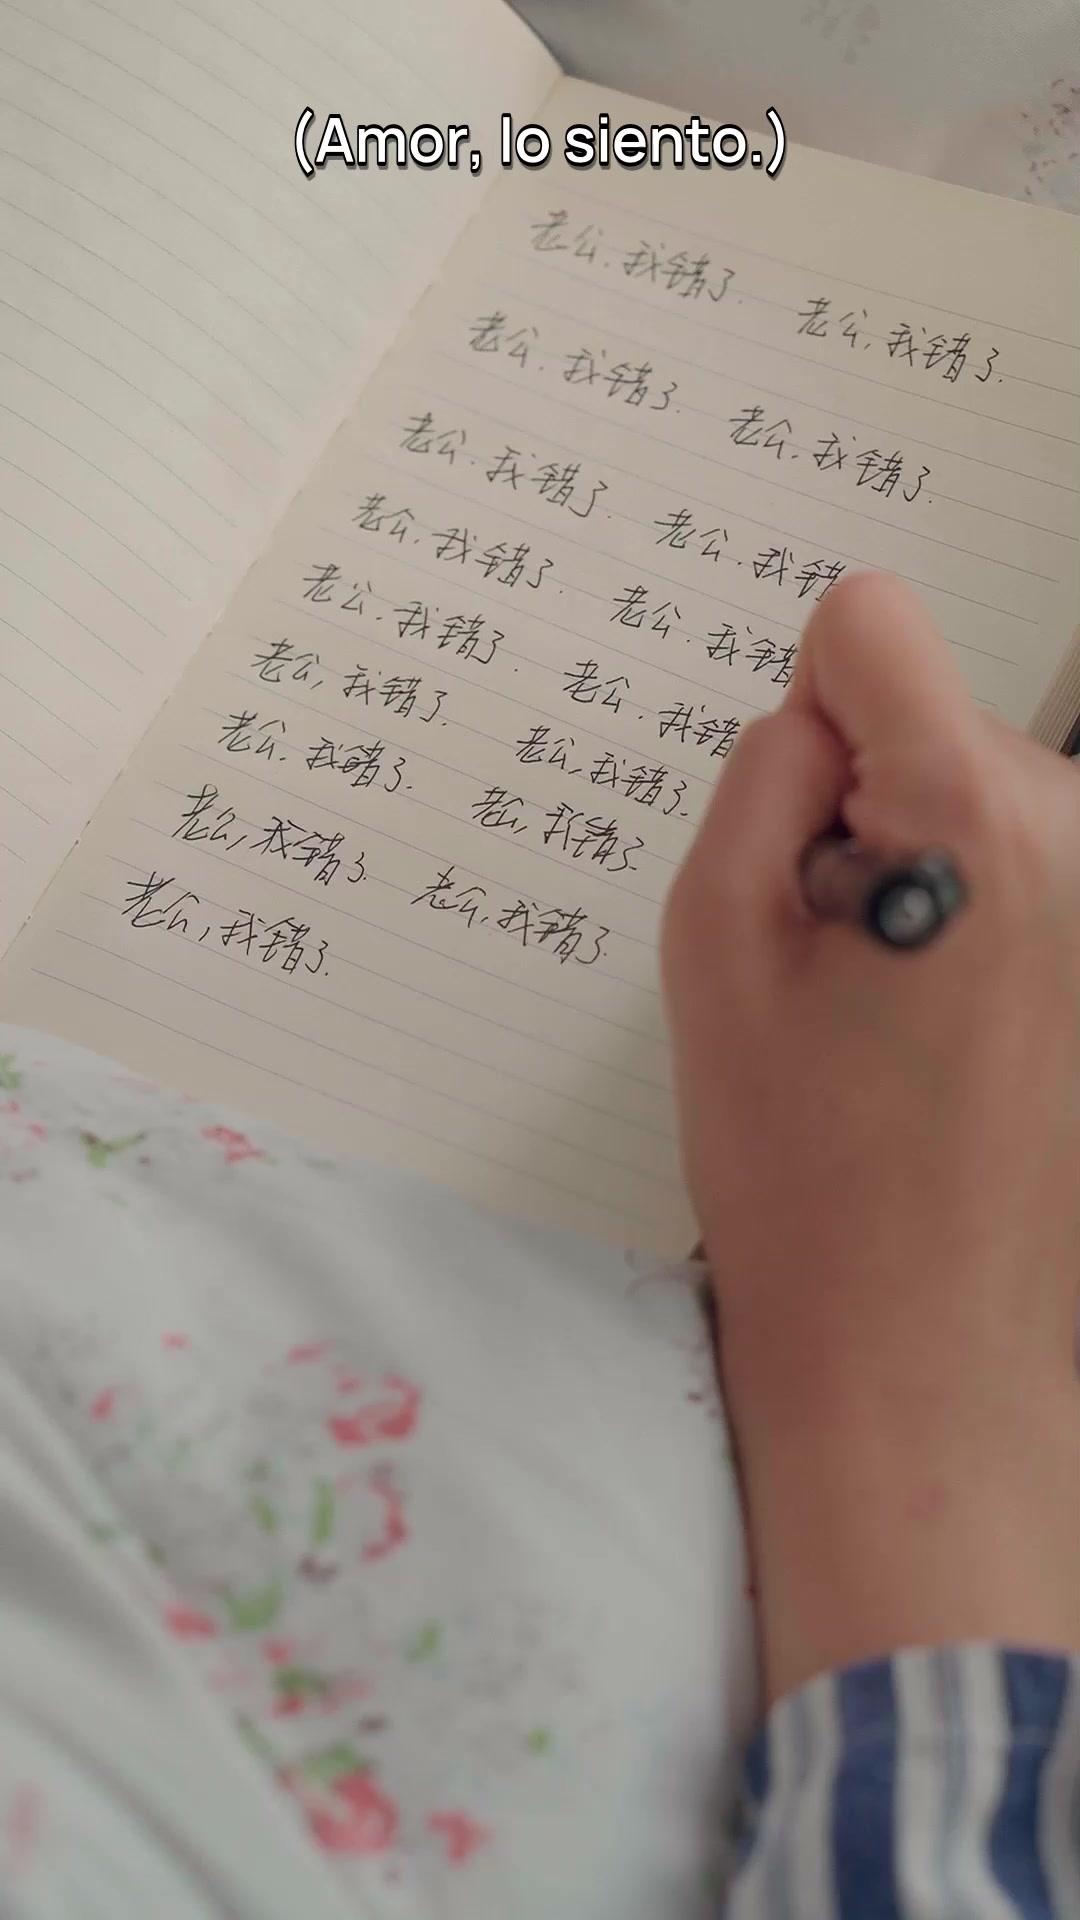 (Amor, lo siento.)
老公.我错了. 老公,我错了.
老公.我错了. 老公.我错了.
老公.我错了. 老公.我错
老公.我错了. 老公.我错
老公.我错了. 老公.我错
老公,我错了. 老公,我错了.
老公.我错了. 老公,我错了.
老公,我错了. 老公,我错了.
老公,我错了.